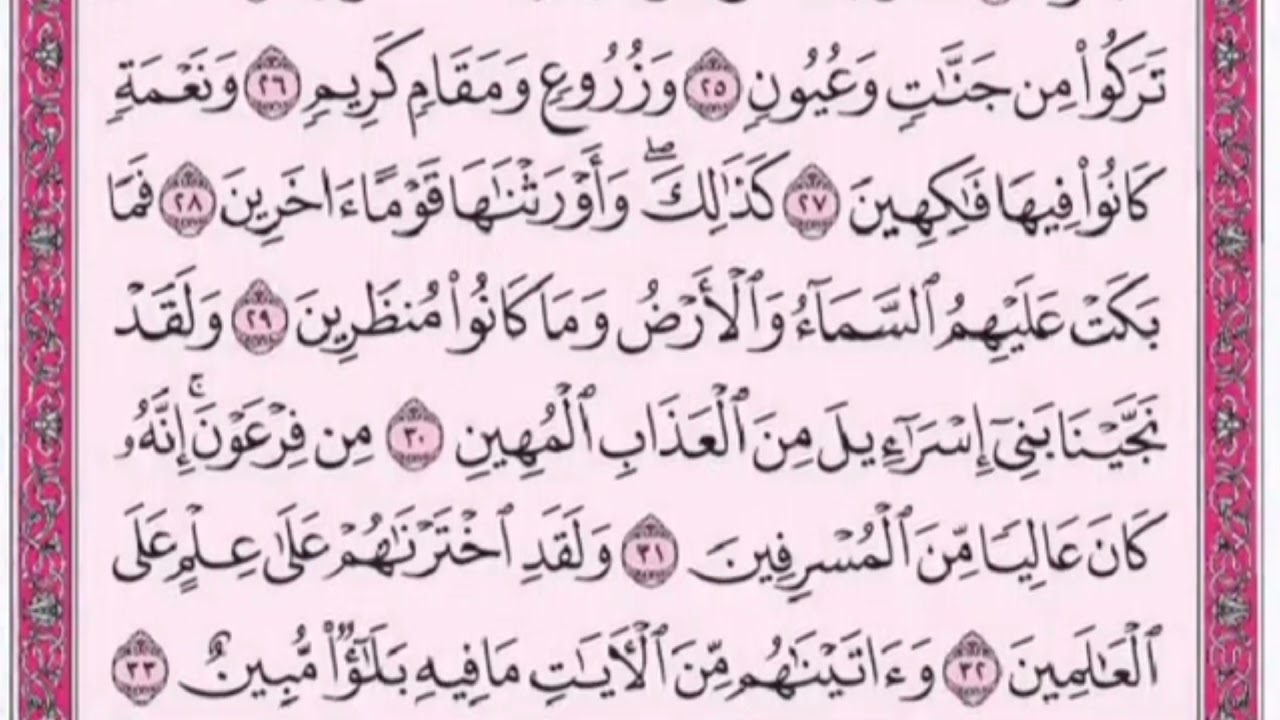 تَرَكُوا۟ مِن جَنَّٰتٍ وَعُيُونٍ ٢٥ وَزُرُوعٍ وَمَقَامٍ كَرِيمٍ ٢٦ وَنَعْمَةٍ
كَانُوا۟ فِيهَا فَٰكِهِينَ ٢٧ كَذَٰلِكَ ۖ وَأَوْرَثْنَٰهَا قَوْمًا ءَاخَرِينَ ٢٨ فَمَا
بَكَتْ عَلَيْهِمُ ٱلسَّمَآءُ وَٱلْأَرْضُ وَمَا كَانُوا۟ مُنظَرِينَ ٢٩ وَلَقَدْ
نَجَّيْنَا بَنِىٓ إِسْرَٰٓءِيلَ مِنَ ٱلْعَذَابِ ٱلْمُهِينِ ٣٠ مِن فِرْعَوْنَ ۚ إِنَّهُۥ
كَانَ عَالِيًا مِّنَ ٱلْمُسْرِفِينَ ٣١ وَلَقَدِ ٱخْتَرْنَٰهُمْ عَلَىٰ عِلْمٍ عَلَى
ٱلْعَٰلَمِينَ ٣٢ وَءَاتَيْنَٰهُم مِّنَ ٱلْءَايَٰتِ مَا فِيهِ بَلَٰٓؤٌا۟ مُّبِينٌ ٣٣